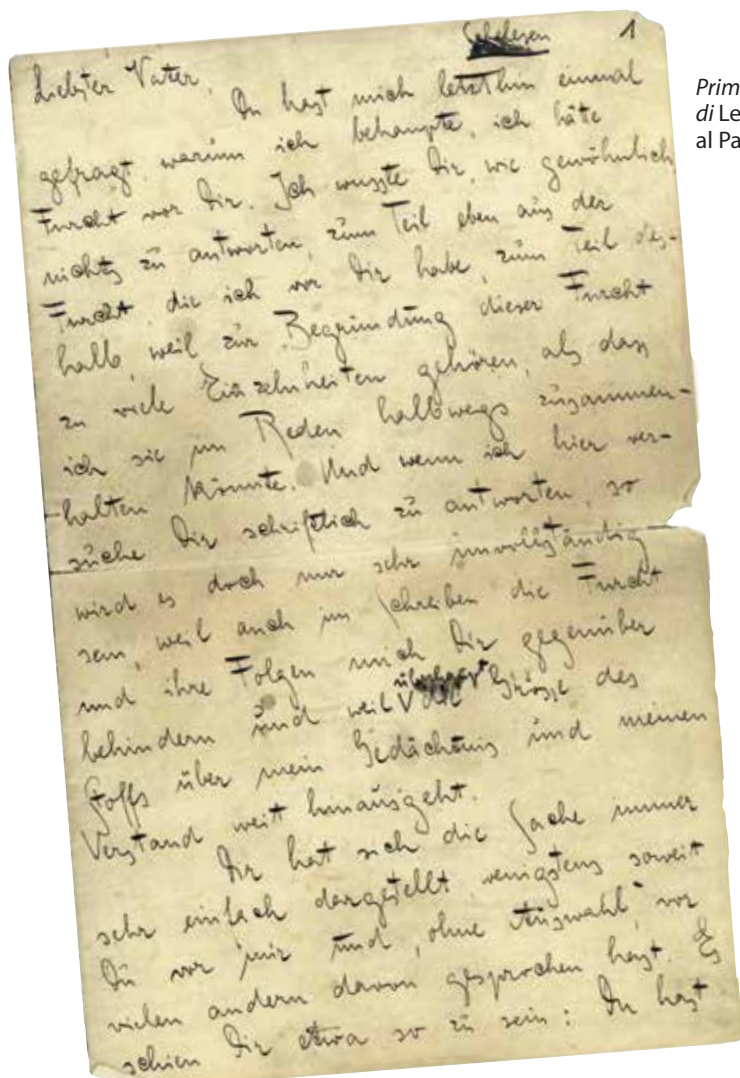 Schelesen 1
Liebster Vater,
Du hast mich letzthin einmal
gefragt, warum ich behaupte, ich hätte
Furcht vor Dir. Ich wusste Dir, wie gewöhnlich,
nichts zu antworten, zum Teil eben aus der
Furcht, die ich vor Dir habe, zum Teil des-
halb, weil zur Begründung dieser Furcht
zu viele Einzelnheiten gehören, als dass
ich sie im Reden halbwegs zusammen-
halten könnte. Und wenn ich hier ver-
suche Dir schriftlich zu antworten, so
wird es doch nur sehr unvollständig
sein, weil auch im Schreiben die Furcht
und ihre Folgen mich Dir gegenüber
behindern und weil überhaupt die Grösse des
Stoffs über mein Gedächtnis und meinen
Verstand weit hinausgeht.
Dir hat sich die Sache immer
sehr einfach dargestellt, wenigstens soweit
Du vor mir und, ohne Auswahl, vor
vielen andern davon gesprochen hast. Es
schien Dir etwa so zu sein: Du hast
Prim
di Le
al Pa